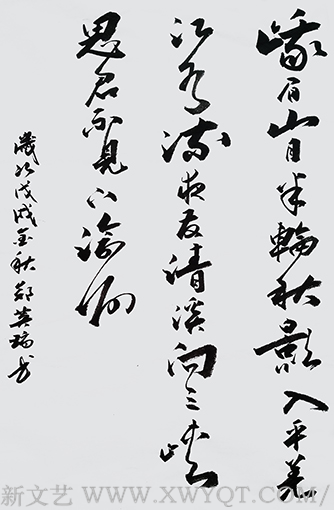 峨眉山月半輪秋影入平羌
江水流夜發清溪向三峽
思君不見下渝州
歲次戊戌金秋英瑞書
新文艺 WWW.XWYQT.COM/